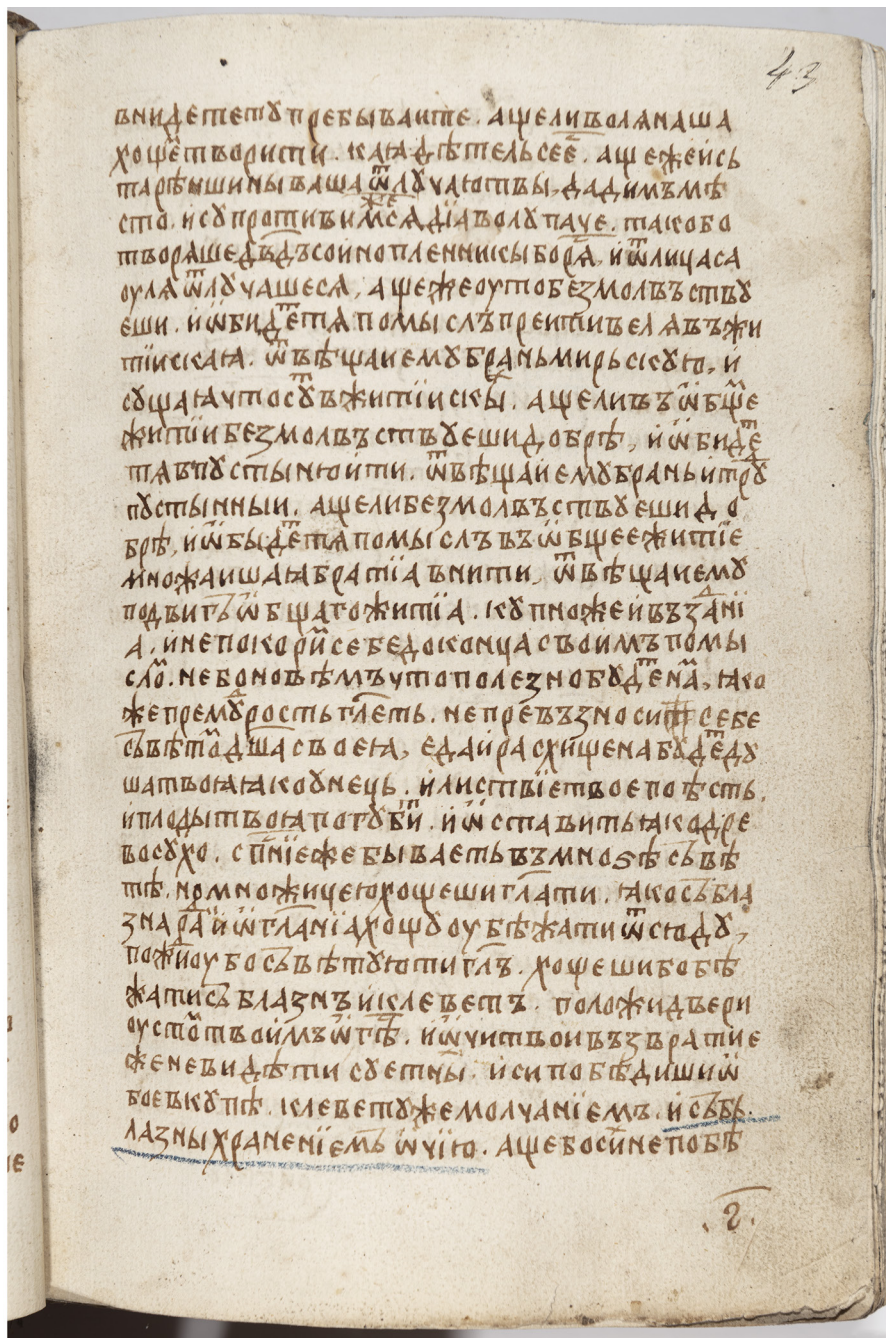 43
внидете ту пребываите. аще ли воля наша
хощет̾ творити. каѧ дѣтель сее҄. аще же и сь
тарѣишины ваша ѿлучаютъ вы, дадимъ мѣ
сто. и супротивим же сѧ дїаволу паче. тако бо
творѧше дв҃дъ со иноплен̾никы борѧ, и ѿ лица са
оулѧ ѿлучашесѧ, аще же оуто безмолвъству
еши. и ѡбидет тѧ помыслъ преити в елѧ въ жи
тїискаѧ. ѿвѣщаи ему брань мирьскую, и
сущаѧ ѿтосуд въ житїискых. аще ли въ ѡбщем
житїи безмолвъствуеши добрѣ, и ѡбидет
тѧ в пустыню ити. ѿвѣщаи ему брань и труд
пустынныи. аще ли безмолвъствуеши до
брѣ, и ѡбыдет тѧ помыслъ въ ѡбщее житїе
множаишаѧ братїа внити, ѿвѣщаи ему
подвигъ ѡбщаго житїа. купно же и въздани
а, и не покорим себе до конца своимъ помы
слом. не бо но вѣмъ что полезно будет нам, ѧко
же премудрость гл҃еть. не превъзноси себе
съвѣтом дш҃а своеѧ, еда и расхищена будет ду
ша твоѧ ѧко унець. и листвїе твое поѣсть,
и плоды твоѧ погубит. и ѡставить ѧко дре
во сухо. сп҃нїе же бываеть въ мнозѣ съвѣ
тѣ. но множицею хощеши гл҃ати. ѧко събла
зна рад и ѡгл҃анїа хощу оубѣжати ѿсюду,
пожди оубо съвѣтую ти гл҃ъ. хощеши бо бѣ
жати съблазнъ и клеветъ. положи двери
оустом твоимъ ѡ гд҃ѣ. и ѡчи твои възврати е
же не видѣти суетных. и си побѣдиши ѡ
бое вкупѣ. клевету же молчанїемъ. и съб̾
лазны храненїемъ ѡчїю. аще бо сих не побѣ
.г҃.